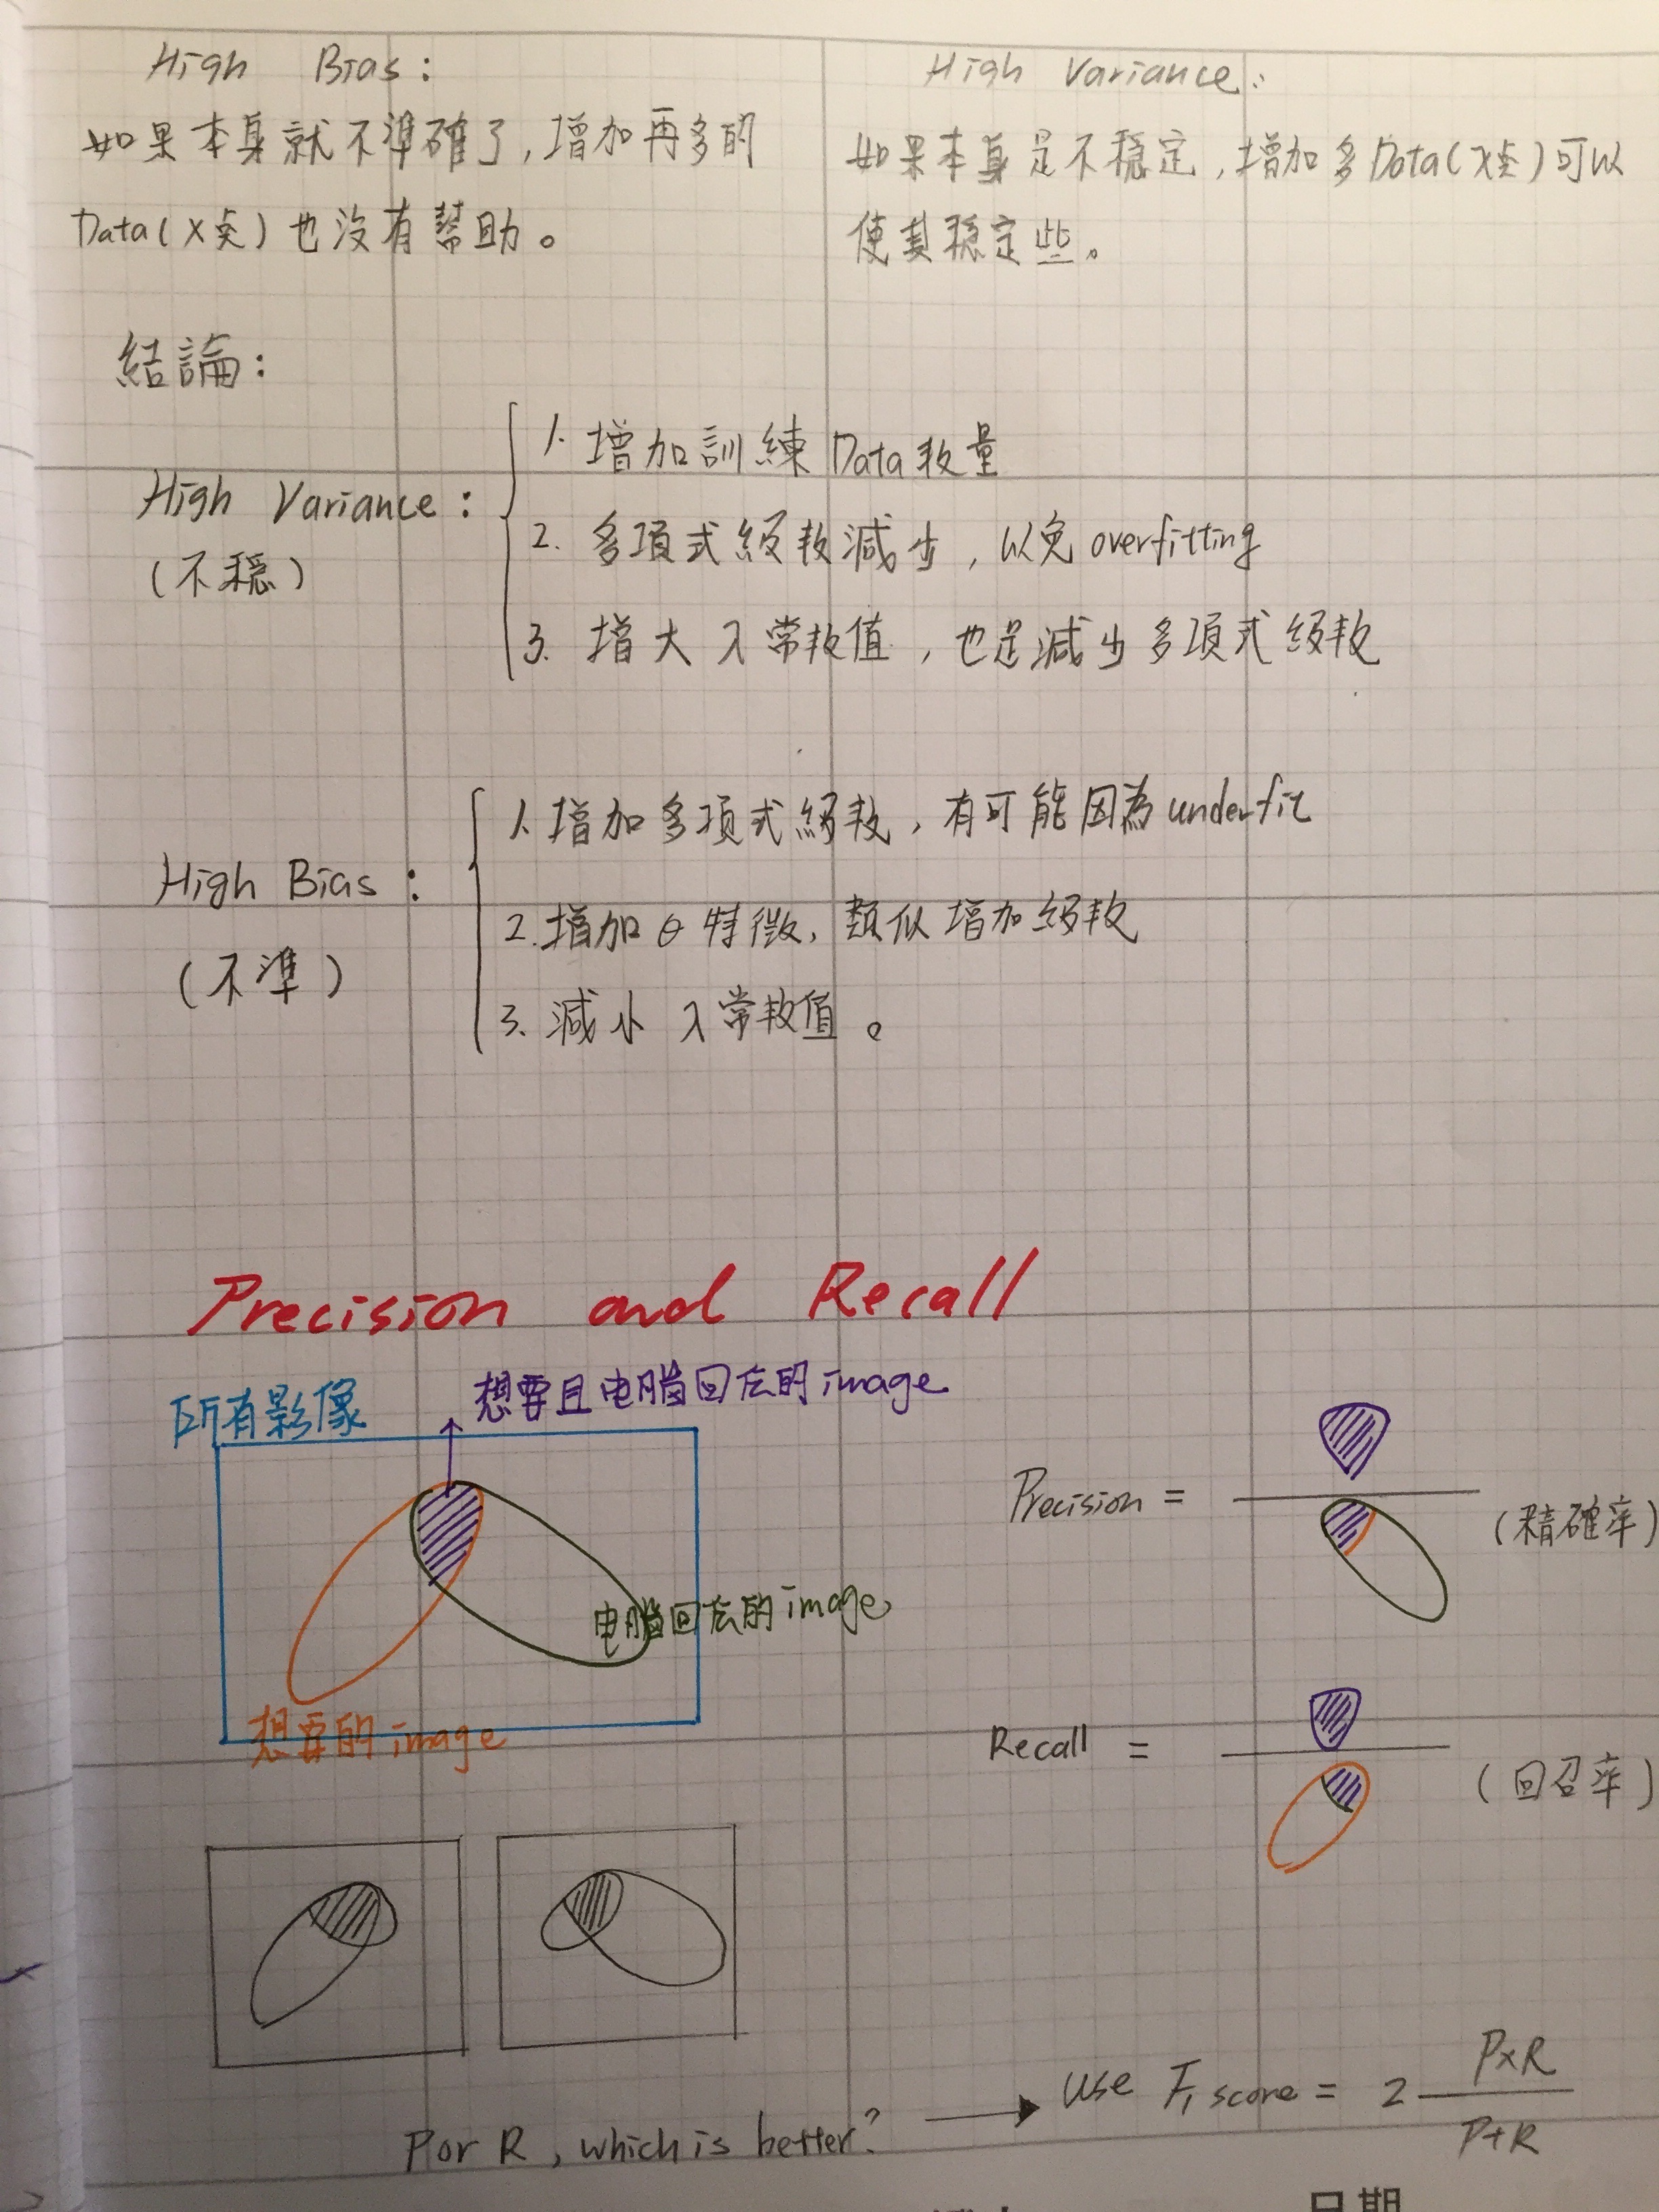 High Bias:
如果本身就不準確了,增加再多的
Data(X点)也沒有幫助。
High Variance:
如果本身是不穩定,增加多Data(X点)可以
使其穩定些。
結論:
High Variance:
(不穩)
1. 增加訓練Data数量
2. 多項式級数減少,以免overfitting
3. 增大λ常数值,也是減少多項式級数
High Bias:
(不準)
1. 增加多項式級数,有可能因為underfit
2. 增加θ特徵,類似增加級数
3. 減小λ常数值。
Precision and Recall
所有影像
想要且电腦回应的image
电腦回应的image
想要的image
Precision =
(精確率)
Recall =
(回召率)
P or R, which is better?
use F1 score = 2 PxR
P+R
日期